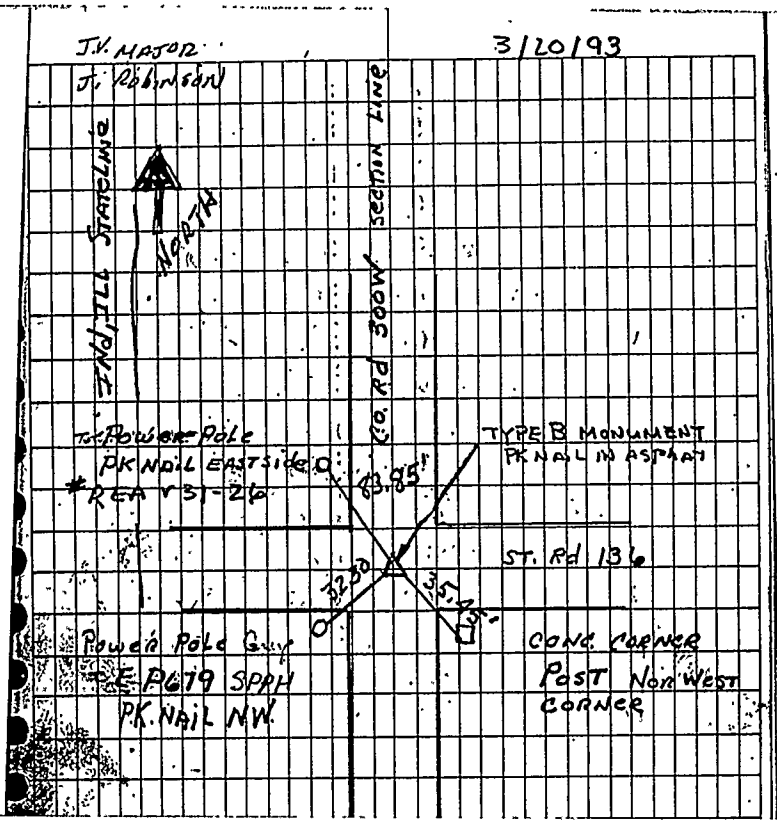 J.V. MAJOR
3/20/93
J. Robinson
IND, ILL STATELINE
NORTH
CO. Rd 300W SECTION LINE
Power Pole
PK NAIL EAST Side
83.85'
TYPE B MONUMENT
PK NAIL IN ASPHALT
ST. Rd 136
35.45'
Power Pole Guy
CONC. CORNER
POST NORWEST
CORNER
PK. NAIL NW.